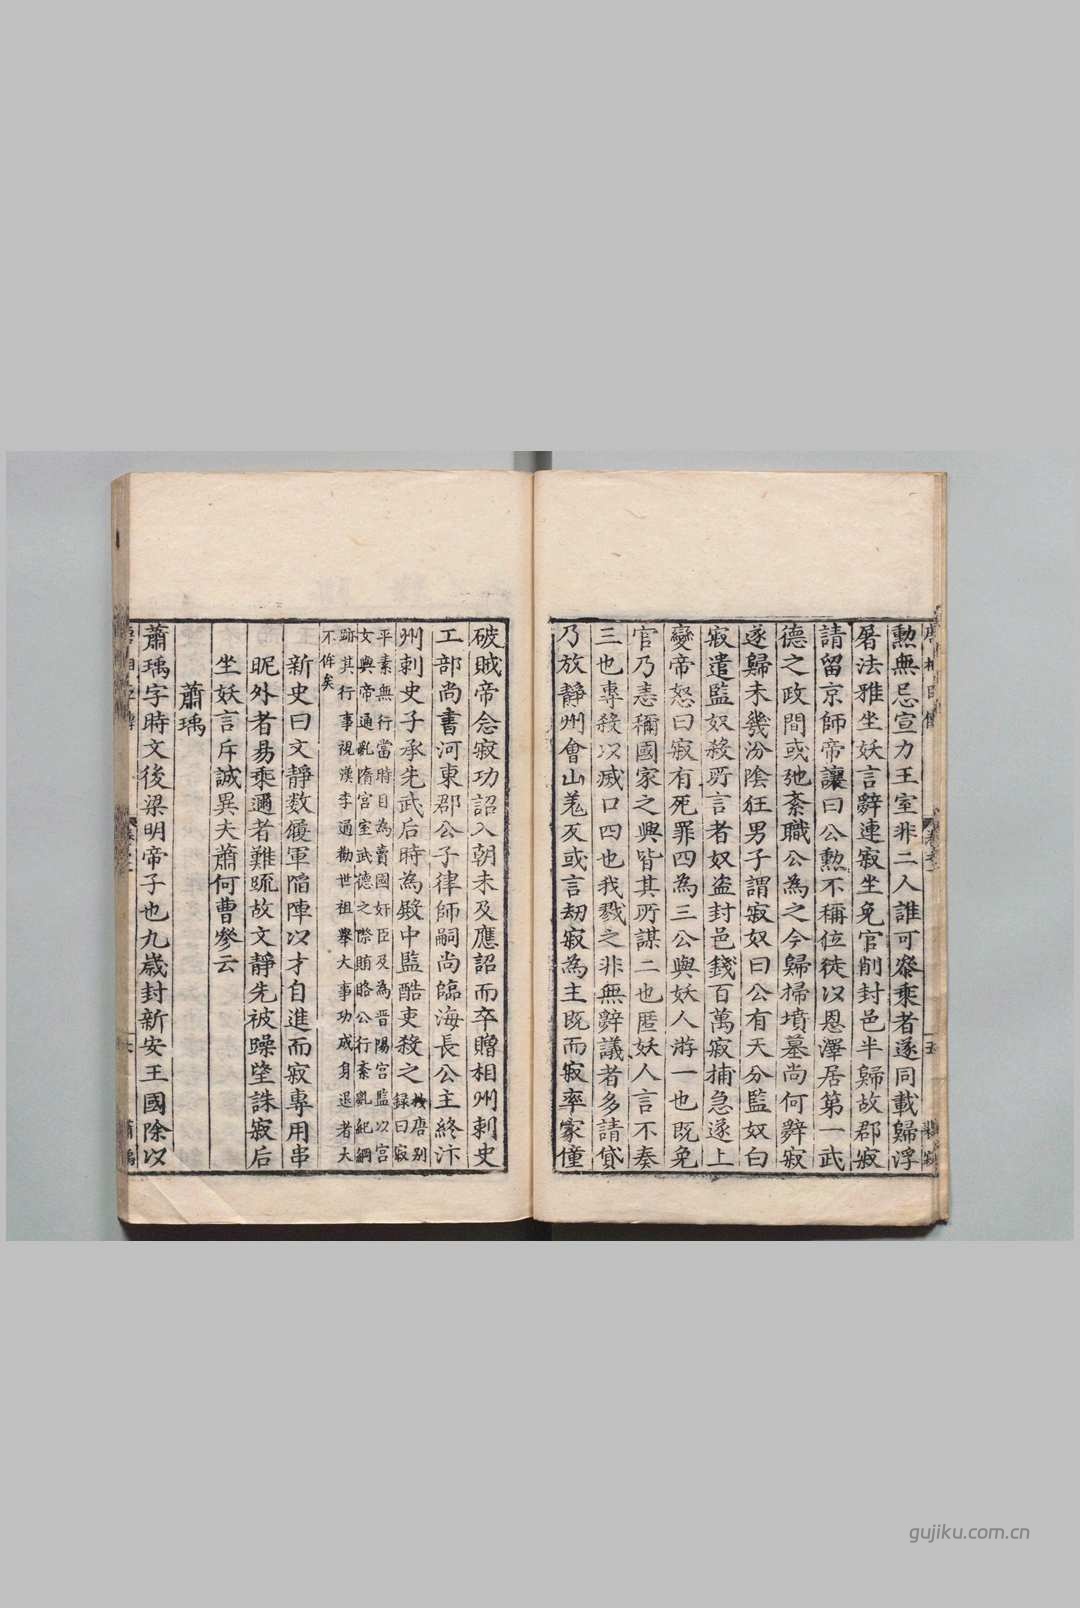 勲無忌宣力王室非二人誰可叅乘者遂同載歸浮
屠法雅坐妖言辭連寂坐免官削封邑半歸故郡寂
請留京師帝讓曰公勲不稱位徒以恩澤居第一武
德之政間或弛紊職公為之今歸掃墳墓尚何辭寂
遂歸未幾汾陰狂男子謂寂奴曰公有天分監奴白
寂遣監奴殺所言者奴盜封邑錢百萬寂捕急遂上
變帝怒曰寂有死罪四為三公與妖人游一也既免
官乃恚稱國家之興皆其所謀二也匿妖人言不奏
三也專殺以滅口四也我戮之非無辭議者多請貸
乃放靜州會山羗反或言刼寂為主既而寂率家僮
破賊帝念寂功詔入朝未及應詔而卒贈相州刺史
工部尚書河東郡公子律師嗣尚臨海長公主終汴
州刺史子承先武后時為殿中監酷吏殺之 按唐别
録曰寂
平素無行當時目為賣國奸臣及為晋陽宮監以宮
女與帝通亂隋宮室武德之際賄賂公行紊亂紀綱
跡其行事視漢李通勸世祖舉大事功成身退者大
不侔矣
新史曰文靜数履軍陷陣以才自進而寂專用串
昵外者易乘邇者難䟽故文靜先被躁望誅寂后
坐妖言斥誠異夫蕭何曹參云
蕭瑀
蕭瑀字時文後梁明帝子也九歲封新安王國除以
gujiku.com.cn